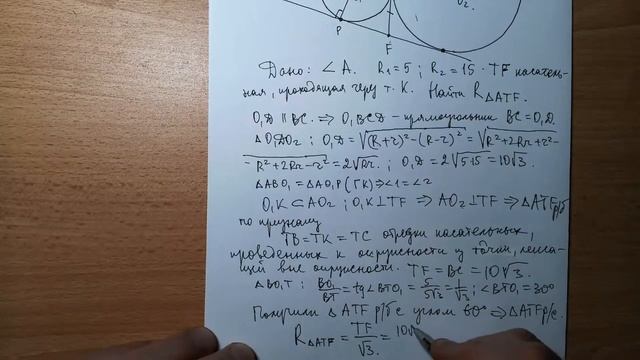 r₂
P
F
Дано: ∠A. R₁=5; R₂=15. TF касатель-
ная, проходящая через т. K. Найти R△ATF.
O₁D ∥ BC. ⇒ O₁BCD - прямоугольник BC=O₁D.
△O₁DO₂; O₁D=√(R+r)²-(R-r)²=√R²+2Rr+r²-
-R²+2Rr-r²=2√Rr.; O₁D=2√5·15=10√3.
△ABO₁=△AO₁P(ГК)⇒∠1=∠2
O₁K⊂AO₂; O₁K⊥TF ⇒ AO₂⊥TF ⇒ △ATF р/б
по признаку
TB=TK=TC отрезки касательных,
проведенных к окружности из точки, лежа-
щей вне окружности. TF=BC=10√3.
△BO₁T: BO₁/BT=tg∠BTO₁=5/5√3=1/√3; ∠BTO₁=30°
Получили △ATF р/б с углом 60° ⇒ △ATF р/с.
R△ATF=TF/√3.=10√